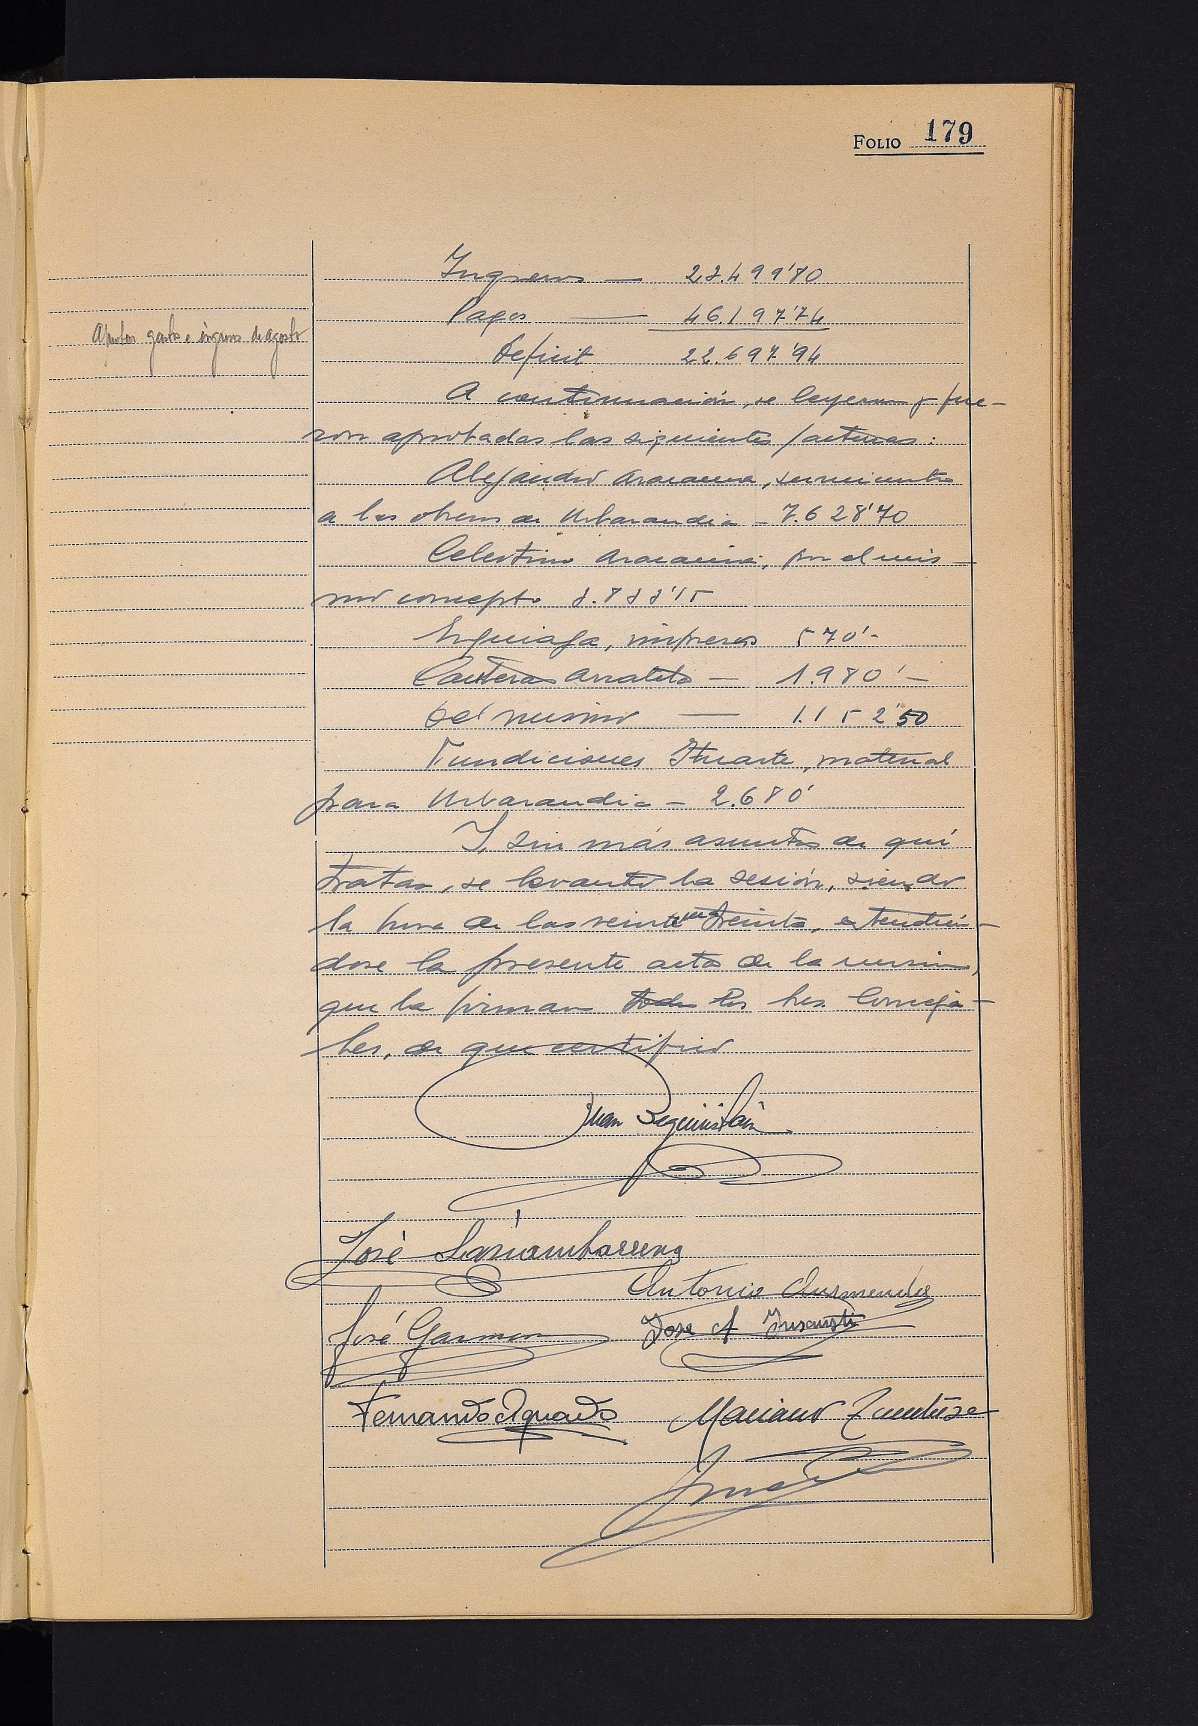 FOLIO 179
Ingresos — 23.499'80
Pagos — 46.197'74
Aprobar gastos e ingresos de agosto
Deficit 22.697'94
A continuación, se leyeron y fue-
ron aprobadas las siguientes facturas:
Alejandro Aracama, suministro
a las obras de Urbarundia - 7.628'70
Celestino Aracama, por el mis-
mo concepto 3.833'15
Eguiaga, impresos 570'-
Canteras Arralete — 1.980'-
Del mismo — 1.152'50
Fundiciones Ituarte, material
para Urbarundia - 2.680'
Y, sin más asuntos de qué
tratar, se levantó la sesión, siendo
la hora de las veintiuna treinta, extendién-
dose la presente acta de la misma,
que la firman todos los Sres. Conceja-
les, de que certifico
Juan Beguiristain
José Lasciambarrena
Antonio Aurmendi
José Garmen
Jose A. Insausti
Fernando Aguado
Mariano Zufiaurre